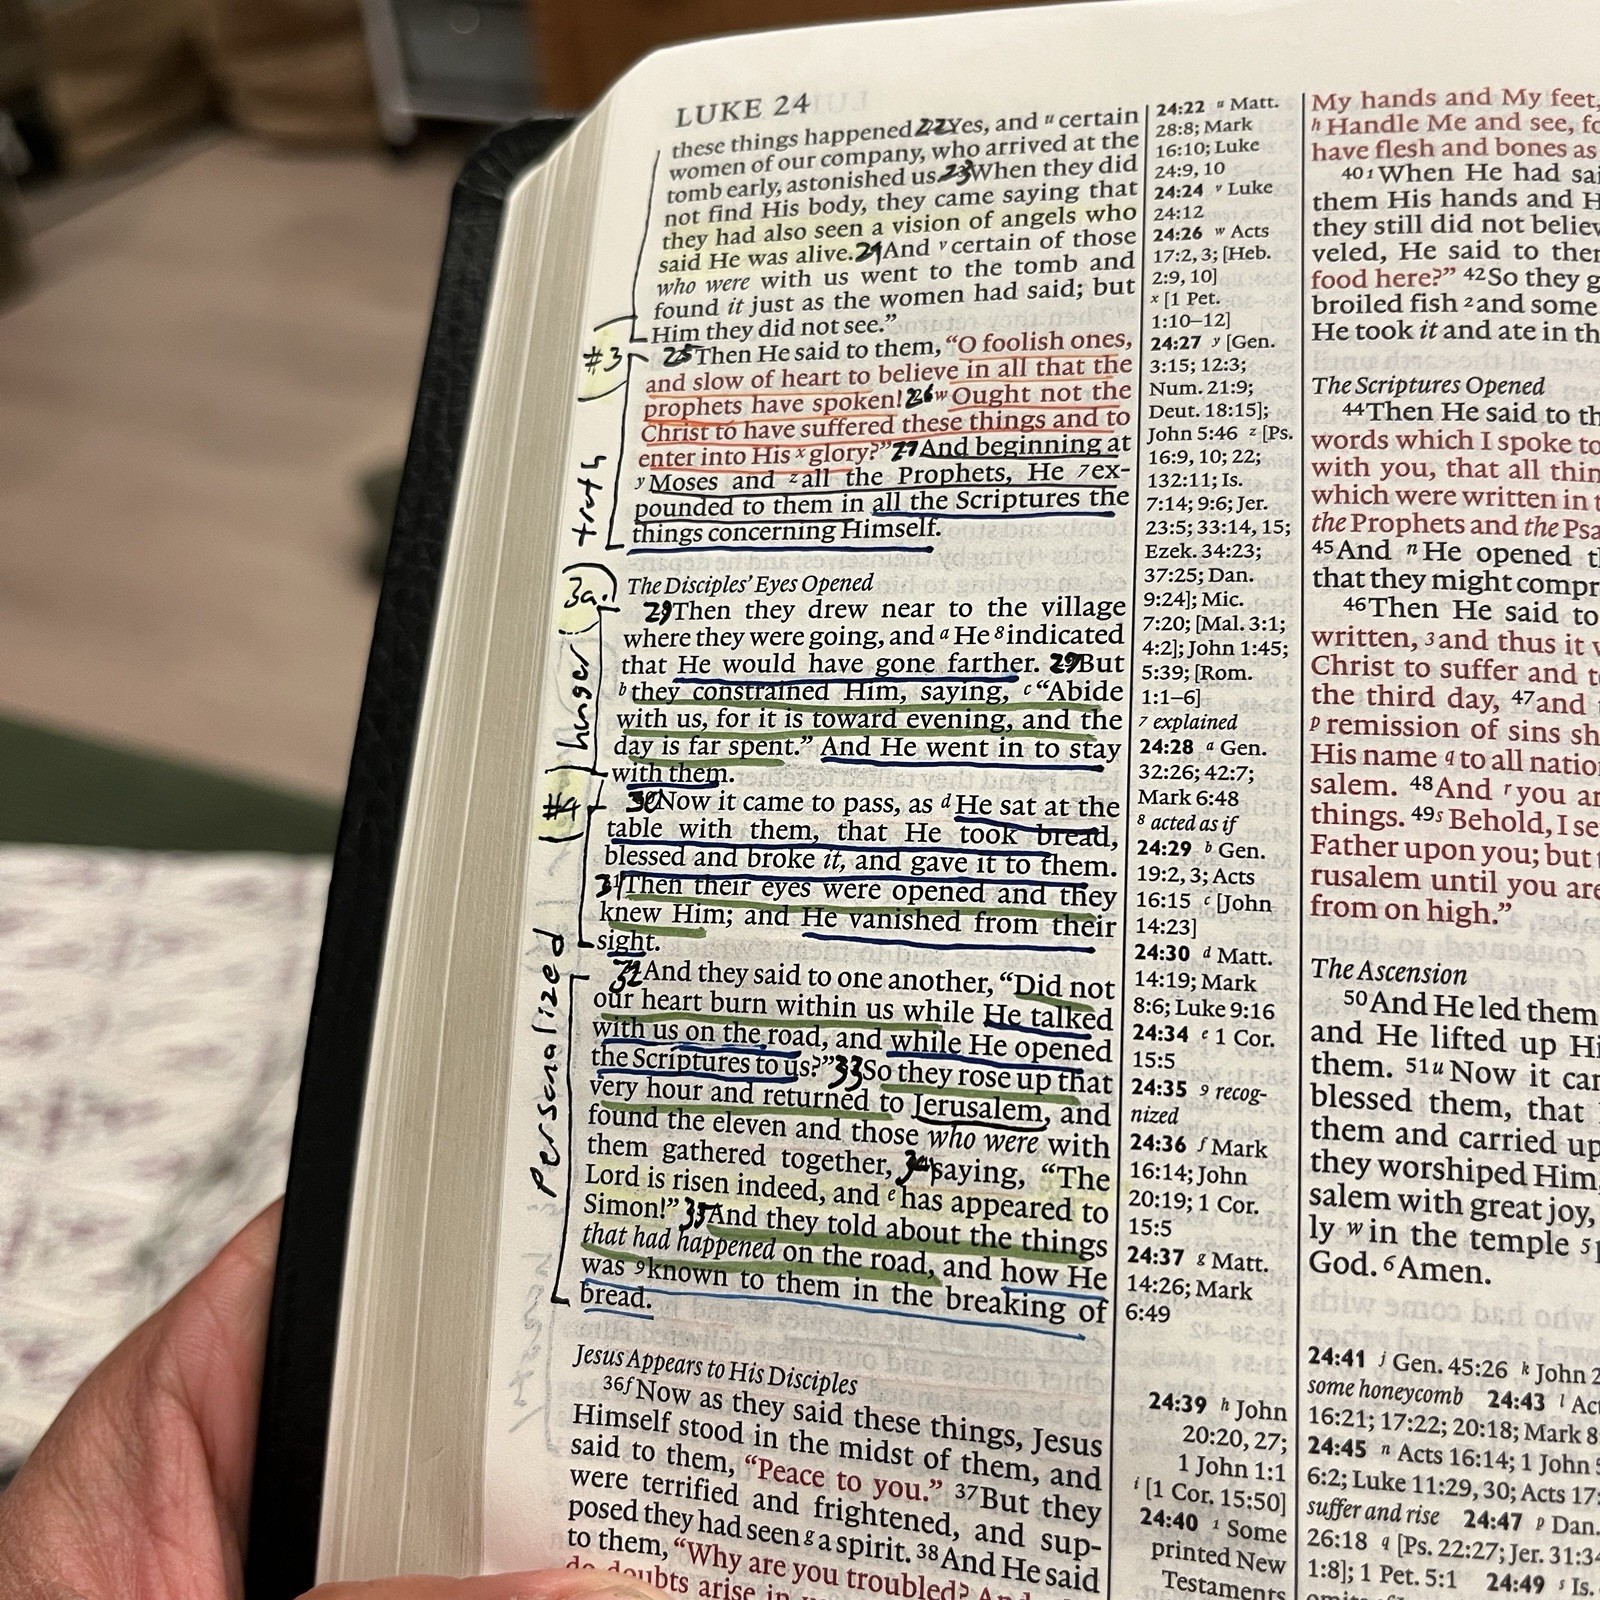 LUKE 24
these things happened. 22Yes, and u certain
women of our company, who arrived at the
tomb early, astonished us. 23When they did
not find His body, they came saying that
they had also seen a vision of angels who
said He was alive. 24And v certain of those
who were with us went to the tomb and
found it just as the women had said; but
Him they did not see.”
#3
25Then He said to them, “O foolish ones,
and slow of heart to believe in all that the
prophets have spoken! 26w Ought not the
Christ to have suffered these things and to
enter into His x glory?” 27And beginning at
y Moses and z all the Prophets, He 7 ex-
pounded to them in all the Scriptures the
things concerning Himself.
truth
3a.
The Disciples’ Eyes Opened
29Then they drew near to the village
where they were going, and a He 8 indicated
that He would have gone farther. 29But
b they constrained Him, saying, c “Abide
with us, for it is toward evening, and the
day is far spent.” And He went in to stay
with them.
hunger
#4
30Now it came to pass, as d He sat at the
table with them, that He took bread,
blessed and broke it, and gave it to them.
31Then their eyes were opened and they
knew Him; and He vanished from their
sight.
Personalized
32And they said to one another, “Did not
our heart burn within us while He talked
with us on the road, and while He opened
the Scriptures to us?” 33So they rose up that
very hour and returned to Jerusalem, and
found the eleven and those who were with
them gathered together, 34saying, “The
Lord is risen indeed, and e has appeared to
Simon!” 35And they told about the things
that had happened on the road, and how He
was 9 known to them in the breaking of
bread.
Jesus Appears to His Disciples
36f Now as they said these things, Jesus
Himself stood in the midst of them, and
said to them, “Peace to you.” 37But they
were terrified and frightened, and sup-
posed they had seen g a spirit. 38And He said
to them, “Why are you troubled? And
do doubts arise in
24:22 u Matt.
28:8; Mark
16:10; Luke
24:9, 10
24:24 v Luke
24:12
24:26 w Acts
17:2, 3; [Heb.
2:9, 10]
x [1 Pet.
1:10–12]
24:27 y [Gen.
3:15; 12:3;
Num. 21:9;
Deut. 18:15];
John 5:46 z [Ps.
16:9, 10; 22;
132:11; Is.
7:14; 9:6; Jer.
23:5; 33:14, 15;
Ezek. 34:23;
37:25; Dan.
9:24]; Mic.
7:20; [Mal. 3:1;
4:2]; John 1:45;
5:39; [Rom.
1:1–6]
7 explained
24:28 a Gen.
32:26; 42:7;
Mark 6:48
8 acted as if
24:29 b Gen.
19:2, 3; Acts
16:15 c [John
14:23]
24:30 d Matt.
14:19; Mark
8:6; Luke 9:16
24:34 e 1 Cor.
15:5
24:35 9 recog-
nized
24:36 f Mark
16:14; John
20:19; 1 Cor.
15:5
24:37 g Matt.
14:26; Mark
6:49
24:39 h John
20:20, 27;
1 John 1:1
i [1 Cor. 15:50]
24:40 1 Some
printed New
Testaments
My hands and My feet,
h Handle Me and see, fo
have flesh and bones as
40 1 When He had sai
them His hands and H
they still did not believ
veled, He said to ther
food here?” 42So they g
broiled fish 2 and some
He took it and ate in th
The Scriptures Opened
44Then He said to th
words which I spoke to
with you, that all thin
which were written in t
the Prophets and the Psa
45And n He opened t
that they might compr
46Then He said to
written, 3 and thus it w
Christ to suffer and t
the third day, 47and
p remission of sins sh
His name q to all natio
salem. 48And r you ar
things. 49s Behold, I se
Father upon you; but
rusalem until you are
from on high.”
The Ascension
50And He led them
and He lifted up Hi
them. 51u Now it car
blessed them, that
them and carried up
they worshiped Him,
salem with great joy,
ly w in the temple 5
God. 6 Amen.
24:41 j Gen. 45:26 k John 2
some honeycomb 24:43 l Act
16:21; 17:22; 20:18; Mark 8
24:45 n Acts 16:14; 1 John 5
6:2; Luke 11:29, 30; Acts 17:
suffer and rise 24:47 p Dan.
26:18 q [Ps. 22:27; Jer. 31:34
1:8]; 1 Pet. 5:1 24:49 s Is.